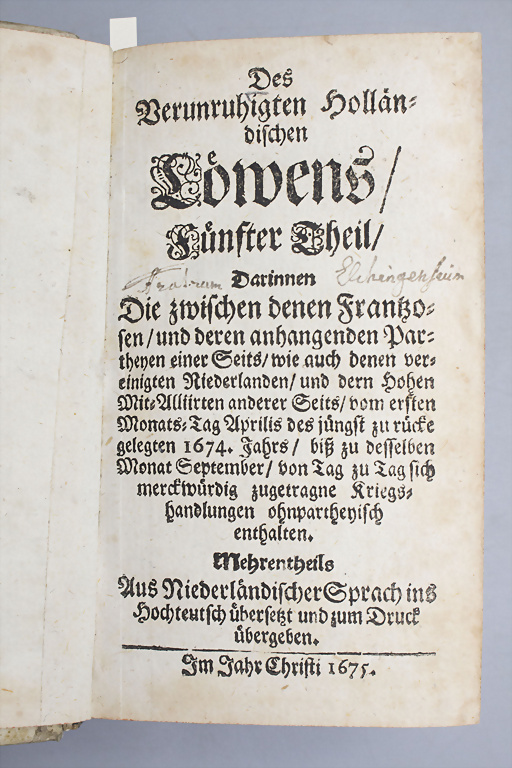 Des
Verunruhigten Hollän-
dischen
Löwens/
Fünfter Theil/
Fratrum Darinnen Elchingensium
Die zwischen denen Frantzo-
sen/ und deren anhangenden Par-
theyen einer Seits/ wie auch denen ver-
einigten Niederlanden/ und dern Hohen
Mit-Alliirten anderer Seits/ vom ersten
Monats-Tag Aprilis des jüngst zu rücke
gelegten 1674. Jahrs/ biß zu desselben
Monat September/ von Tag zu Tag sich
merckwürdig zugetragne Kriegs-
handlungen ohnpartheyisch
enthalten.
Mehrentheils
Aus Niederländischer Sprach ins
Hochteutsch übersetzt und zum Druck
übergeben.
Im Jahr Christi 1675.